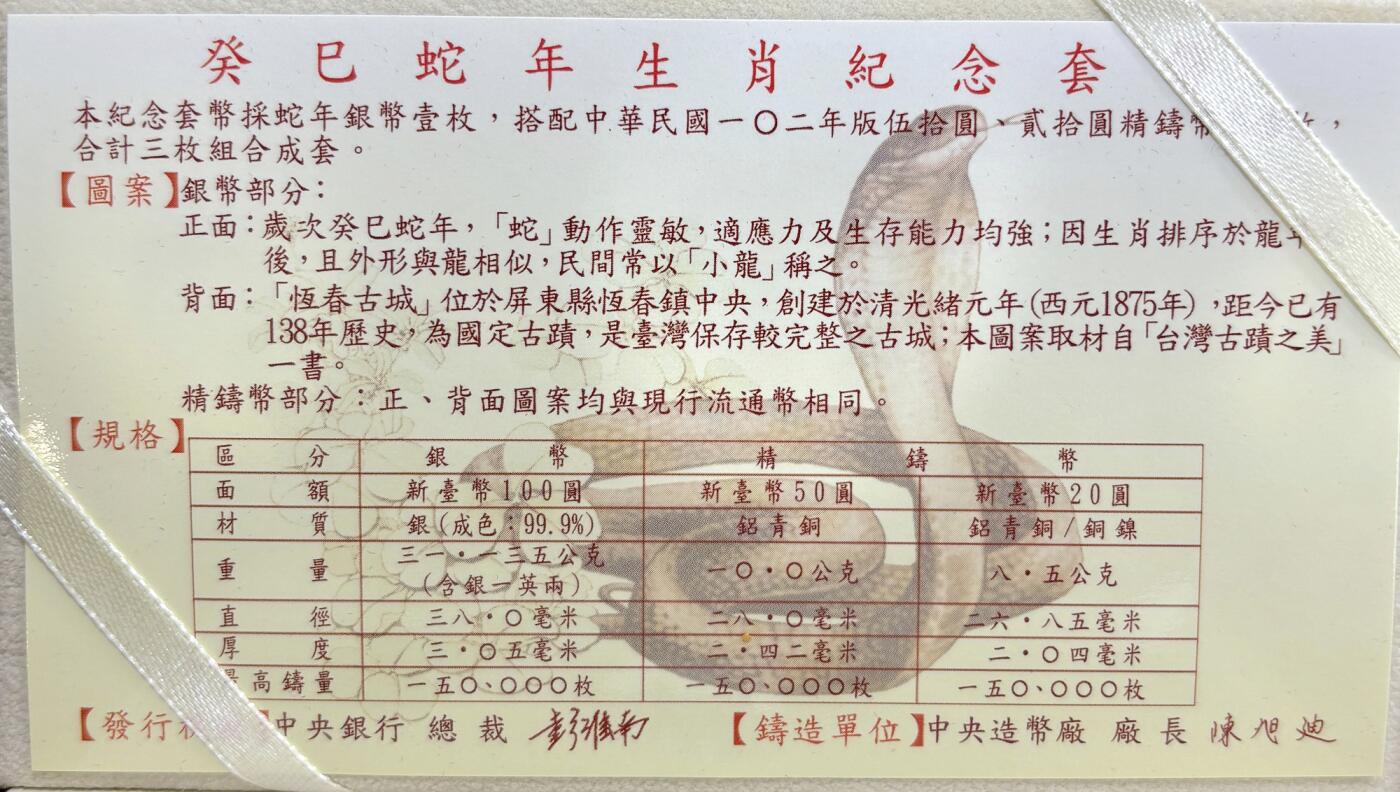 癸巳蛇年生肖紀念套
本紀念套幣採蛇年銀幣壹枚，搭配中華民國一〇二年版伍拾圓、貳拾圓精鑄幣 枚，
合計三枚組合成套。
【圖案】銀幣部分：
正面：歲次癸巳蛇年，「蛇」動作靈敏，適應力及生存能力均強；因生肖排序於龍年
後，且外形與龍相似，民間常以「小龍」稱之。
背面：「恆春古城」位於屏東縣恆春鎮中央，創建於清光緒元年(西元1875年)，距今已有
138年歷史，為國定古蹟，是臺灣保存較完整之古城；本圖案取材自「台灣古蹟之美」
一書。
精鑄幣部分：正、背面圖案均與現行流通幣相同。
【規格】
區分 銀幣 精鑄幣
面額 新臺幣100圓 新臺幣50圓 新臺幣20圓
材質 銀(成色：99.9%) 鋁青銅 鋁青銅/銅鎳
重量 三一·一三五公克(含銀一英兩) 一〇·〇公克 八·五公克
直徑 三八·〇毫米 二八·〇毫米 二六·八五毫米
厚度 三·〇五毫米 二·四二毫米 二·〇四毫米
最高鑄量 一五〇、〇〇〇枚 一五〇、〇〇〇枚 一五〇、〇〇〇枚
【發行 】中央銀行 總裁 彭淮南 【鑄造單位】中央造幣廠 廠長 陳旭迪